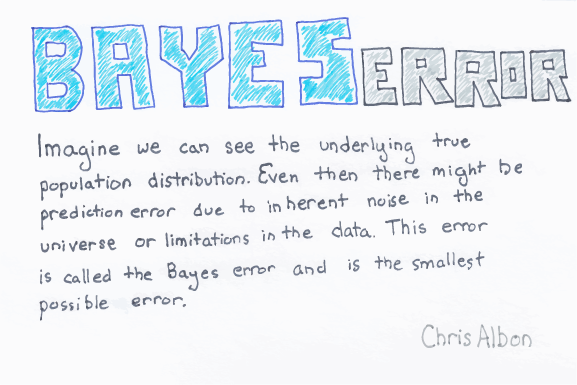 BAYES ERROR
Imagine we can see the underlying true
population distribution. Even then there might be
prediction error due to inherent noise in the
universe or limitations in the data. This error
is called the Bayes error and is the smallest
possible error.
Chris Albon